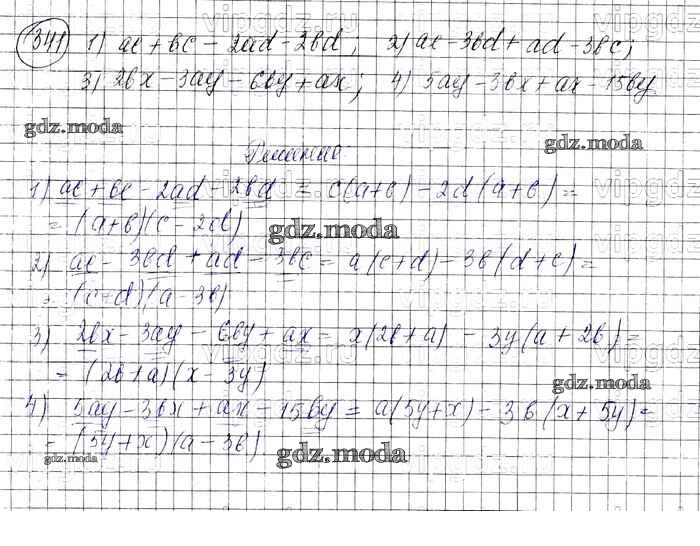 341 1) ac + bc - 2ad - 2bd; 2) ac - 3bd + ad - 3bc;
3) 2bx - 3ay - 6by + ax; 4) 5ay - 3bx + ax - 15by
gdz.moda
gdz.moda
Решение
1) ac + bc - 2ad - 2bd = c(a+b) - 2d(a+b) =
= (a+b)(c - 2d)
gdz.moda
2) ac - 3bd + ad - 3bc = a(c+d) - 3b(d+c) =
= (c+d)(a - 3b)
3) 2bx - 3ay - 6by + ax = x(2b+a) - 3y(a + 2b) =
= (2b+a)(x - 3y)
gdz.moda
4) 5ay - 3bx + ax - 15by = a(5y+x) - 3b(x + 5y) =
= (5y+x)(a - 3b)
gdz.moda
gdz.moda